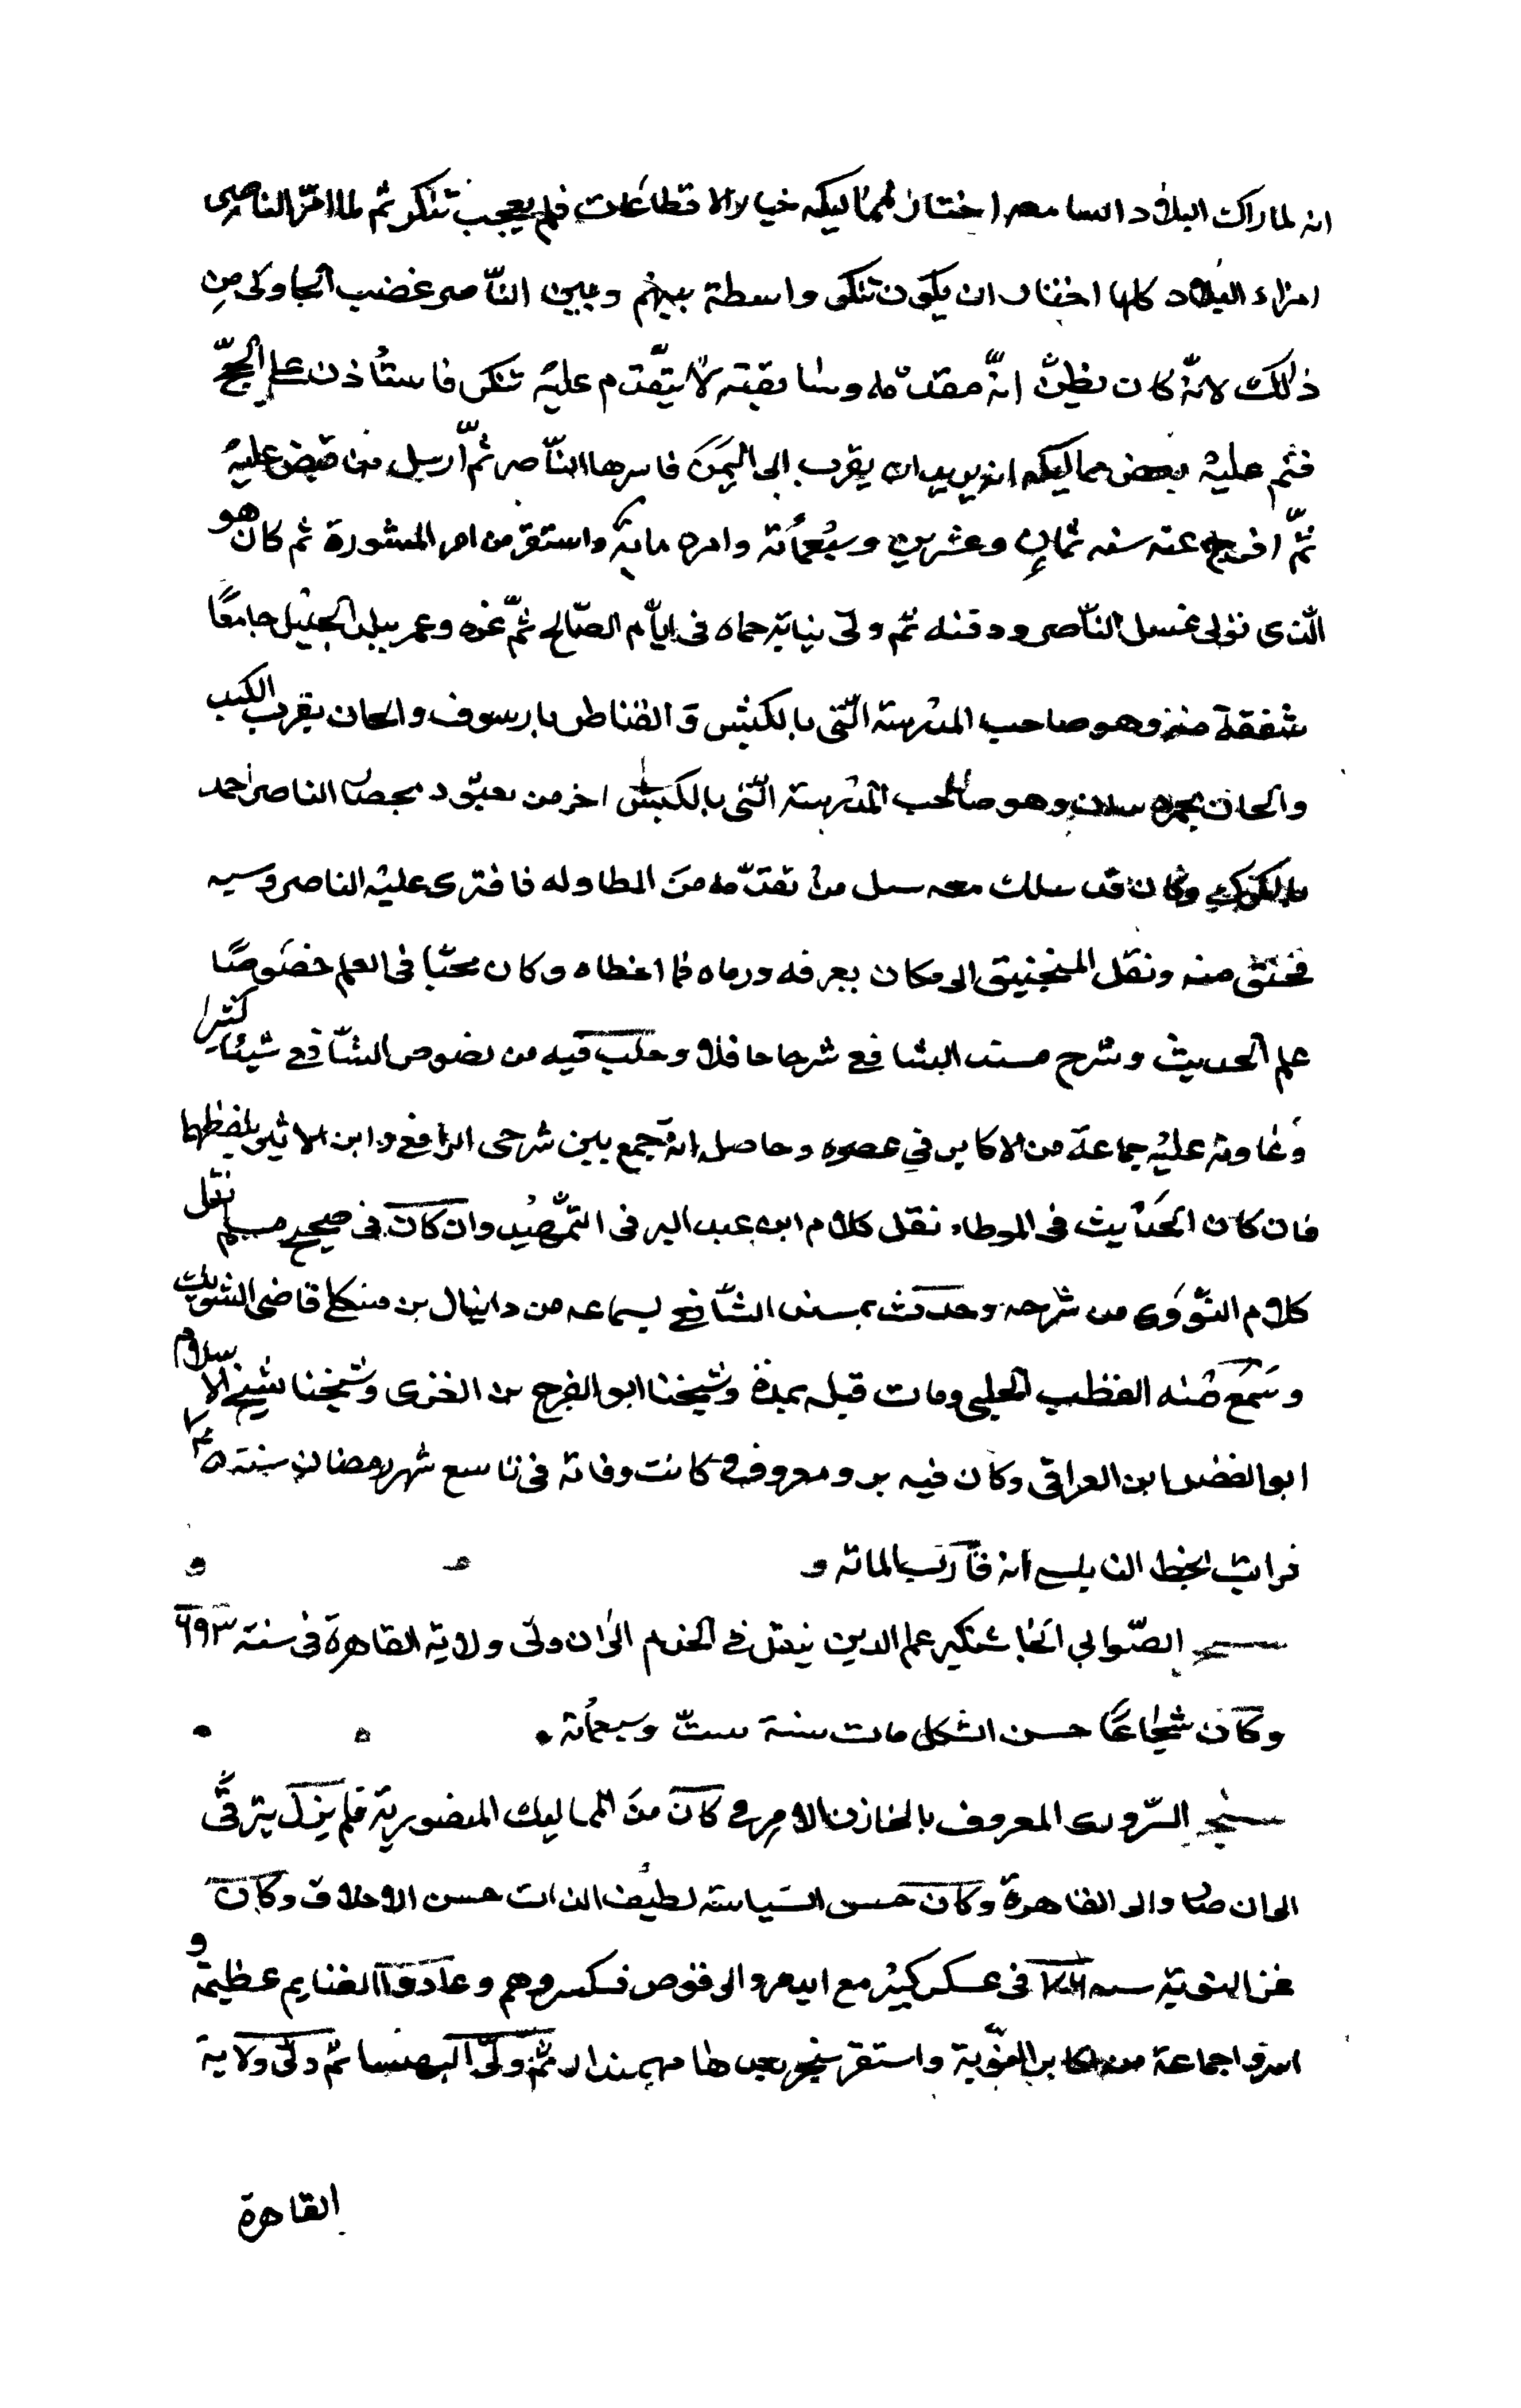 انه لما راك البلاد الشامية اختار لمماليكه خيار الاقطاعات فلم يعجب تنكز ثم لما امّر الناصر
امراء البلاد كلها اختار ان يكون تنكز واسطة بينهم وبين الناصر غضب الجاولى من
ذلك لانّه كان يظنّ انّ مقدمه وسابقته لا يتقدم عليه تنكز فاستأذن على الحجّ
فنم عليه بعض مماليكه انه يريد ان يقرب إلى اليمن فاسرها النّاصر ثمّ أرسل من قبض عليه
ثمّ افرج عنه سنه ثمان وعشرين وسبعمائة وامره مائة واستقر من امر المشورة ثم كان هو
الذى تولى غسل الناصر ودفنه ثم ولى نيابة حماه فى ايّام الصّالح ثمّ غزه وعمر ببلد الخليل جامعًا
سقفه منه وهو صاحب المدرسة الّتى بالكبش و القناطر بارسوف والخان بقرب الكتب
والخان بحمره بيسان وهو صاحب المدرسة الّتى بالكبش اخر من بحصار الناصر احمد
بالكرك وكان قد سلك معه من تقدّمه من المطاوله فافترى عليه الناصر وسبه
فحنق منه ونقل المنجنيق الى مكان يعرفه ورماه فما اخطاه وكان محبّا فى العلم خصوصًا
علم الحديث وشرح مسند الشافعى شرحا حافلا وجلب فيه من نصوص الشّافعى شيئا كثيرا
وعاونه عليه جماعة من الاكابر في عصره وحاصله انه جمع بين شرحى الرافعى وابن الاثير بلفظهما
فان كان الحديث فى الموطاء نقل كلام ابن عبد البر فى التمهيد وان كان فى صحيح مسلم نقل
كلام النّووى من شرحه وحدث بمسند الشّافعى بسماعه من دانيال بن منكلى قاضى الشوبك
وسمع منه القطب الحلبى ومات قبله بمدة وشيخنا ابو الفرج بن الغزى وشيخنا شيخ الاسلام
ابو الفضل ابن العراقى وكان فيه بر ومعروف و كانت وفاته فى تاسع شهر رمضان سنة ٧٤٥
قرات بخط النابلسى انه قارب المائة و
سنجر الصّوابي الجاشنكير علم الدين ينقل فى الخدم الى ان ولى ولاية القاهرة فى سنة ٦٩٣
وكان شجاعًا حسن الشكل مات سنة ستّ وسبعمائة
سنجر السّرورى المعروف بالخازن الامير و كان من المماليك المنصورية فلم يزل يترقّى
الى ان صار والى القاهرة وكان حسن السّياسة لطيف الذات حسن الاخلاق وكان
غزا النوبة سنه فى عسكر كبير مع ايدمر والى قوص فكسروهم وعادوا الغنايم عظيمة و
اسروا جماعة من اكابر النّوبة واستقر سنجر بعدها مهمندار ثم ولى البهنسا ثم ولى ولاية
القاهرة